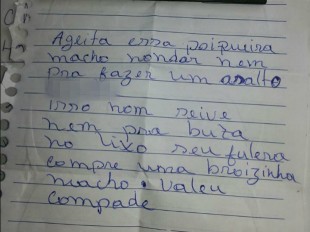 Ageita essa poipueira
macho nondar nem
pra fazer um asalto
isso nom seive
nem pra buta
no lixo seu fulera
compre uma broizinha
macho. valeu
Compade